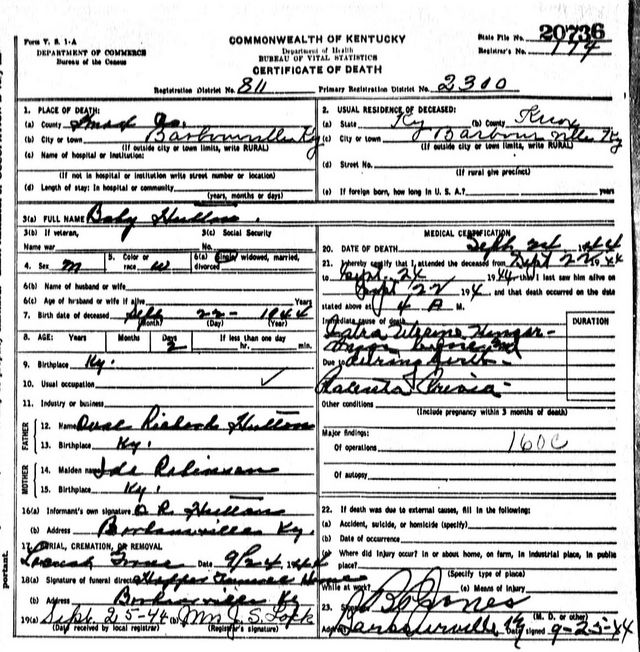 Form V. S. 1-A
DEPARTMENT OF COMMERCE
Bureau of the Census
COMMONWEALTH OF KENTUCKY
Department of Health
BUREAU OF VITAL STATISTICS
CERTIFICATE OF DEATH
State File No. 20736
Registrar's No. 174
Registration District No. 811 Primary Registration District No. 2300
1. PLACE OF DEATH:
(a) County Knox Co.
(b) City or town Barbourville Ky
(If outside city or town limits, write RURAL)
(c) Name of hospital or institution:
(If not in hospital or institution write street number or location)
(d) Length of stay: In hospital or community
(years, months or days)
2. USUAL RESIDENCE OF DECEASED:
(a) State Ky (b) County Knox
(c) City or town Barbourville Ky
(If outside city or town limits, write RURAL)
(d) Street No.
(If rural give precinct)
(e) If foreign born, how long in U. S. A.? years
3(a) FULL NAME Baby
3(b) If veteran,
Name war
3(c) Social Security
No.
4. Sex M
5. Color or
race W
6(a) Single, widowed, married,
divorced
6(b) Name of husband or wife
6(c) Age of husband or wife if alive Years
7. Birth date of deceased Sept 22 - 1944
(Month) (Day) (Year)
8. AGE: Years Months Days If less than one day
2 hr. min.
9. Birthplace Ky.
10. Usual occupation ✓
11. Industry or business
FATHER
12. Name
13. Birthplace Ky.
MOTHER
14. Maiden name Ida Robinson
15. Birthplace Ky.
16(a) Informant's own signature
(b) Address Barbourville Ky.
17. BURIAL, CREMATION, OR REMOVAL
Date 9/24 1944
18(a) Signature of funeral director Hopper Funeral Home
(b) Address Barbourville Ky
19(a) Sept. 25-44 (b) Mrs J. S.
(Date received by local registrar) (Registrar's signature)
MEDICAL CERTIFICATION
20. DATE OF DEATH Sept 24 1944
21. I hereby certify that I attended the deceased from Sept 22 1944
to Sept. 24 1944 that I last saw him alive on
Sept 22 194 and that death occurred on the date
stated above at 4 A M.
Immediate cause of death
DURATION
Intra Uterine Hemor-
Due to during birth
Placenta Previa -
Other conditions
(Include pregnancy within 3 months of death)
Major findings:
Of operations 160C
Of autopsy
22. If death was due to external causes, fill in the following:
(a) Accident, suicide, or homicide (specify)
(b) Date of occurrence
(c) Where did injury occur? In or about home, on farm, in industrial place, in public
place?
(Specify type of place)
While at work? (e) Means of injury
23. Signed Jones
(M. D. or other)
Address Barbourville Ky Date signed 9-25-44
portant.